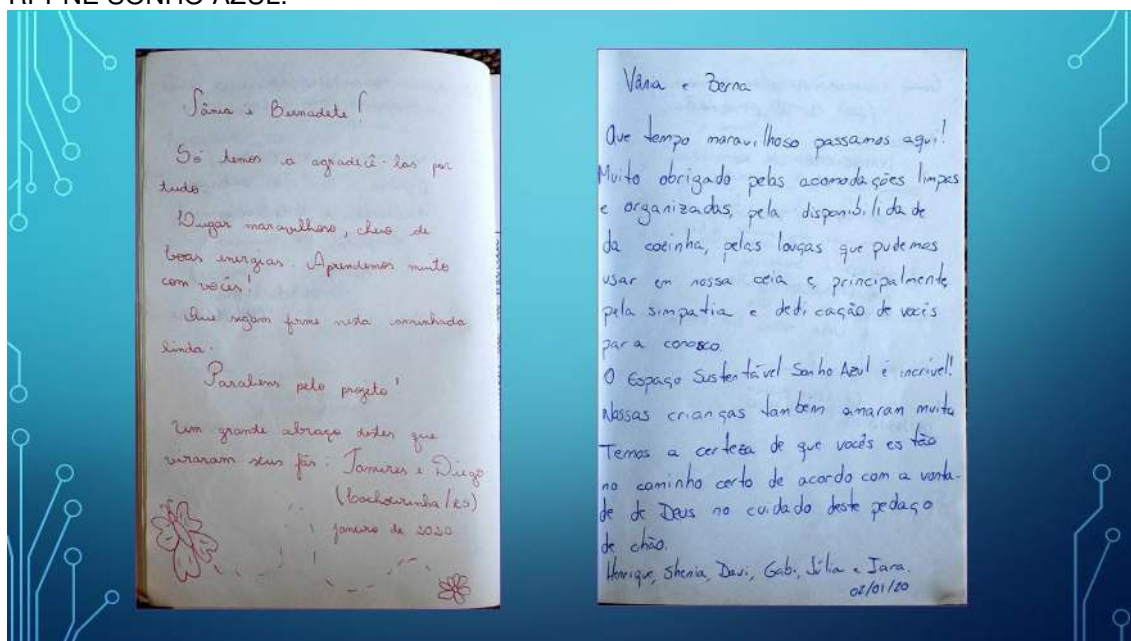 RPPNE SONHO AZUL.
Vânia e Bernadete!
Só temos a agradecê-las por
tudo.
Lugar maravilhoso, cheio de
boas energias. Aprendemos muito
com vocês!
Que sigam firme nesta caminhada
linda.
Parabéns pelo projeto!
Um grande abraço destes que
viraram seus fãs: Tamires e Diego
(Cachoeirinha/RS)
janeiro de 2020
Vânia e Berna
Que tempo maravilhoso passamos aqui!
Muito obrigado pelas acomodações limpas
e organizadas, pela disponibilidade
da cozinha, pelas louças que pudemos
usar em nossa ceia e, principalmente
pela simpatia e dedicação de vocês
para conosco.
O Espaço Sustentável Sonho Azul é incrível!
Nossas crianças também amaram muito
Temos a certeza de que vocês estão
no caminho certo de acordo com a vonta-
de de Deus no cuidado deste pedaço
de chão.
Henrique, Shenia, Davi, Gabi, Júlia e Iara.
02/01/20